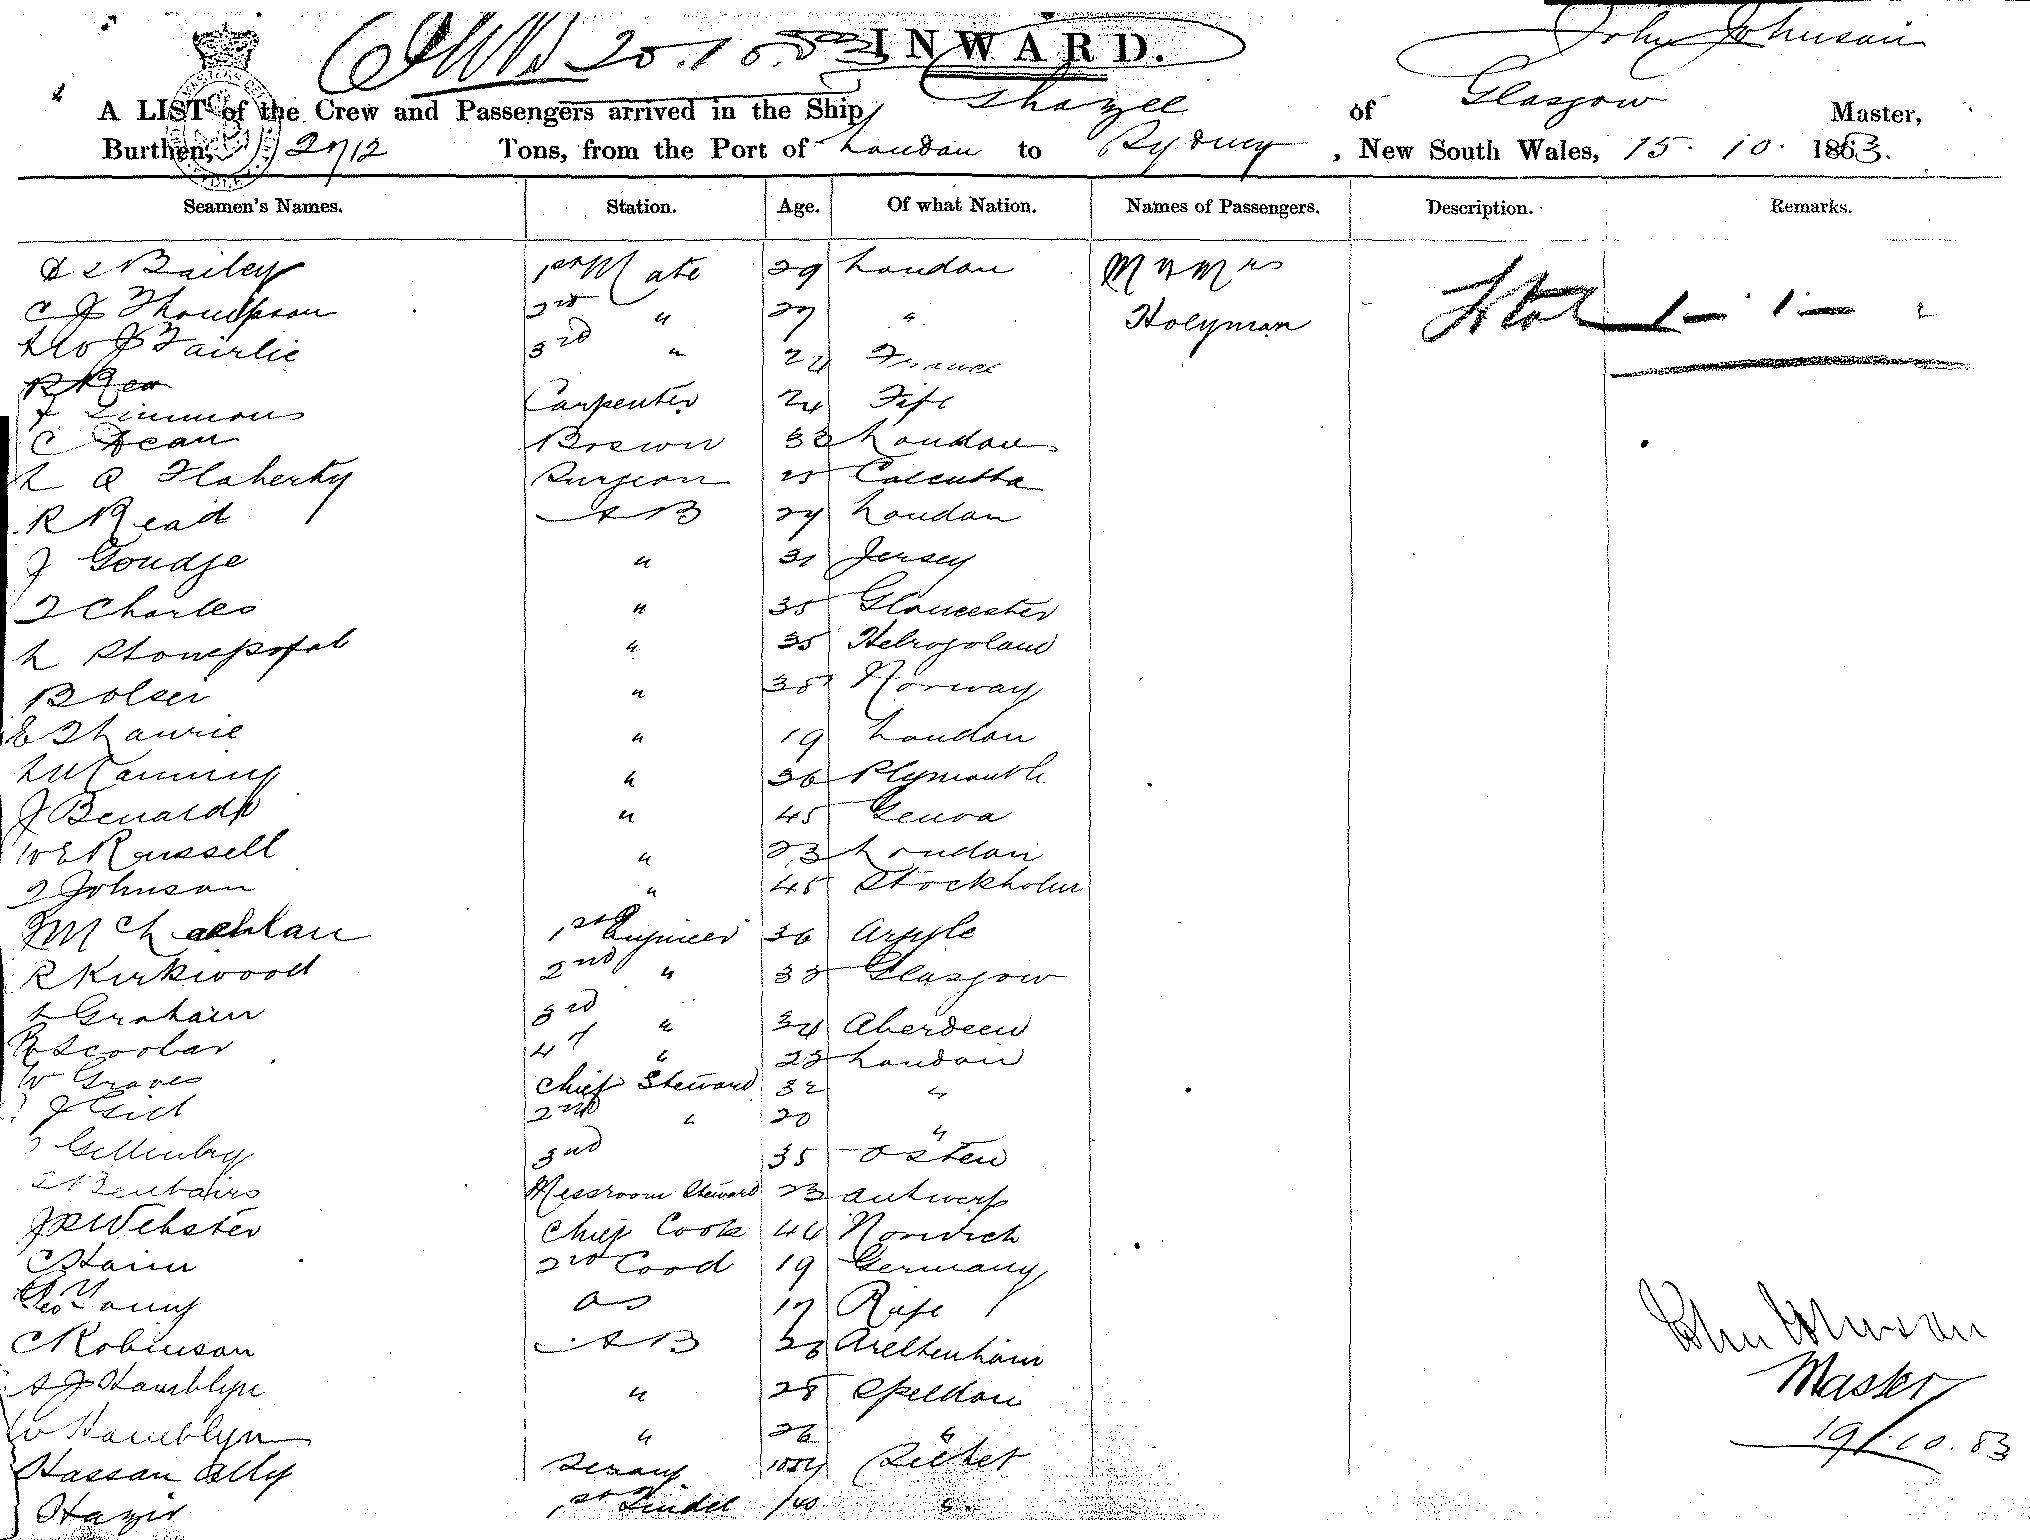 20.10.83 INWARD. John Johnson
A LIST of the Crew and Passengers arrived in the Ship of Glasgow Master,
Burthen, 2712 Tons, from the Port of London to Sydney, New South Wales, 15. 10. 1883.
Seamen's Names. Station. Age. Of what Nation. Names of Passengers. Description. Remarks.
Bailey 1st Mate 29 London Mr & Mrs
C J Thompson 2nd " 27 " Holyman Total 1 — 1 —
Fairlie 3rd " 24 France
R Rea
Simmons Carpenter 24 Fife
C Dean Boswn 33 London
L A Flaherty Surgeon 25 Calcutta
R Read AB 27 London
J Goudge " 31 Jersey
T Charles " 35 Gloucester
L " 35 Heligoland
B Olsen " 35 Norway
E T Laurie " 19 London
Canning " 36 Plymouth
J " 45 Genoa
W E Russell " 23 London
T Johnson " 45 Stockholm
McLachlan 1st Engineer 36 Argyle
R Kirkwood 2nd " 33 Glasgow
L Graham 3rd " 34 Aberdeen
4th " 22 London
W Graves Chief Steward 32 "
J 2nd " 20 "
3rd 35 Osten
Messroom Steward 23 Antwerp
J R Webster Chief Cook 46 Norwich
C Hain 2nd Cood 19 Germany
Geo Young OS 17
C Robinson AB 28
A J Hamblyn " 28
W Hamblyn " 26 "
Hassan Ally Serang Silhet
1st Tindel 40 "
John Johnson
Master
19/10.83